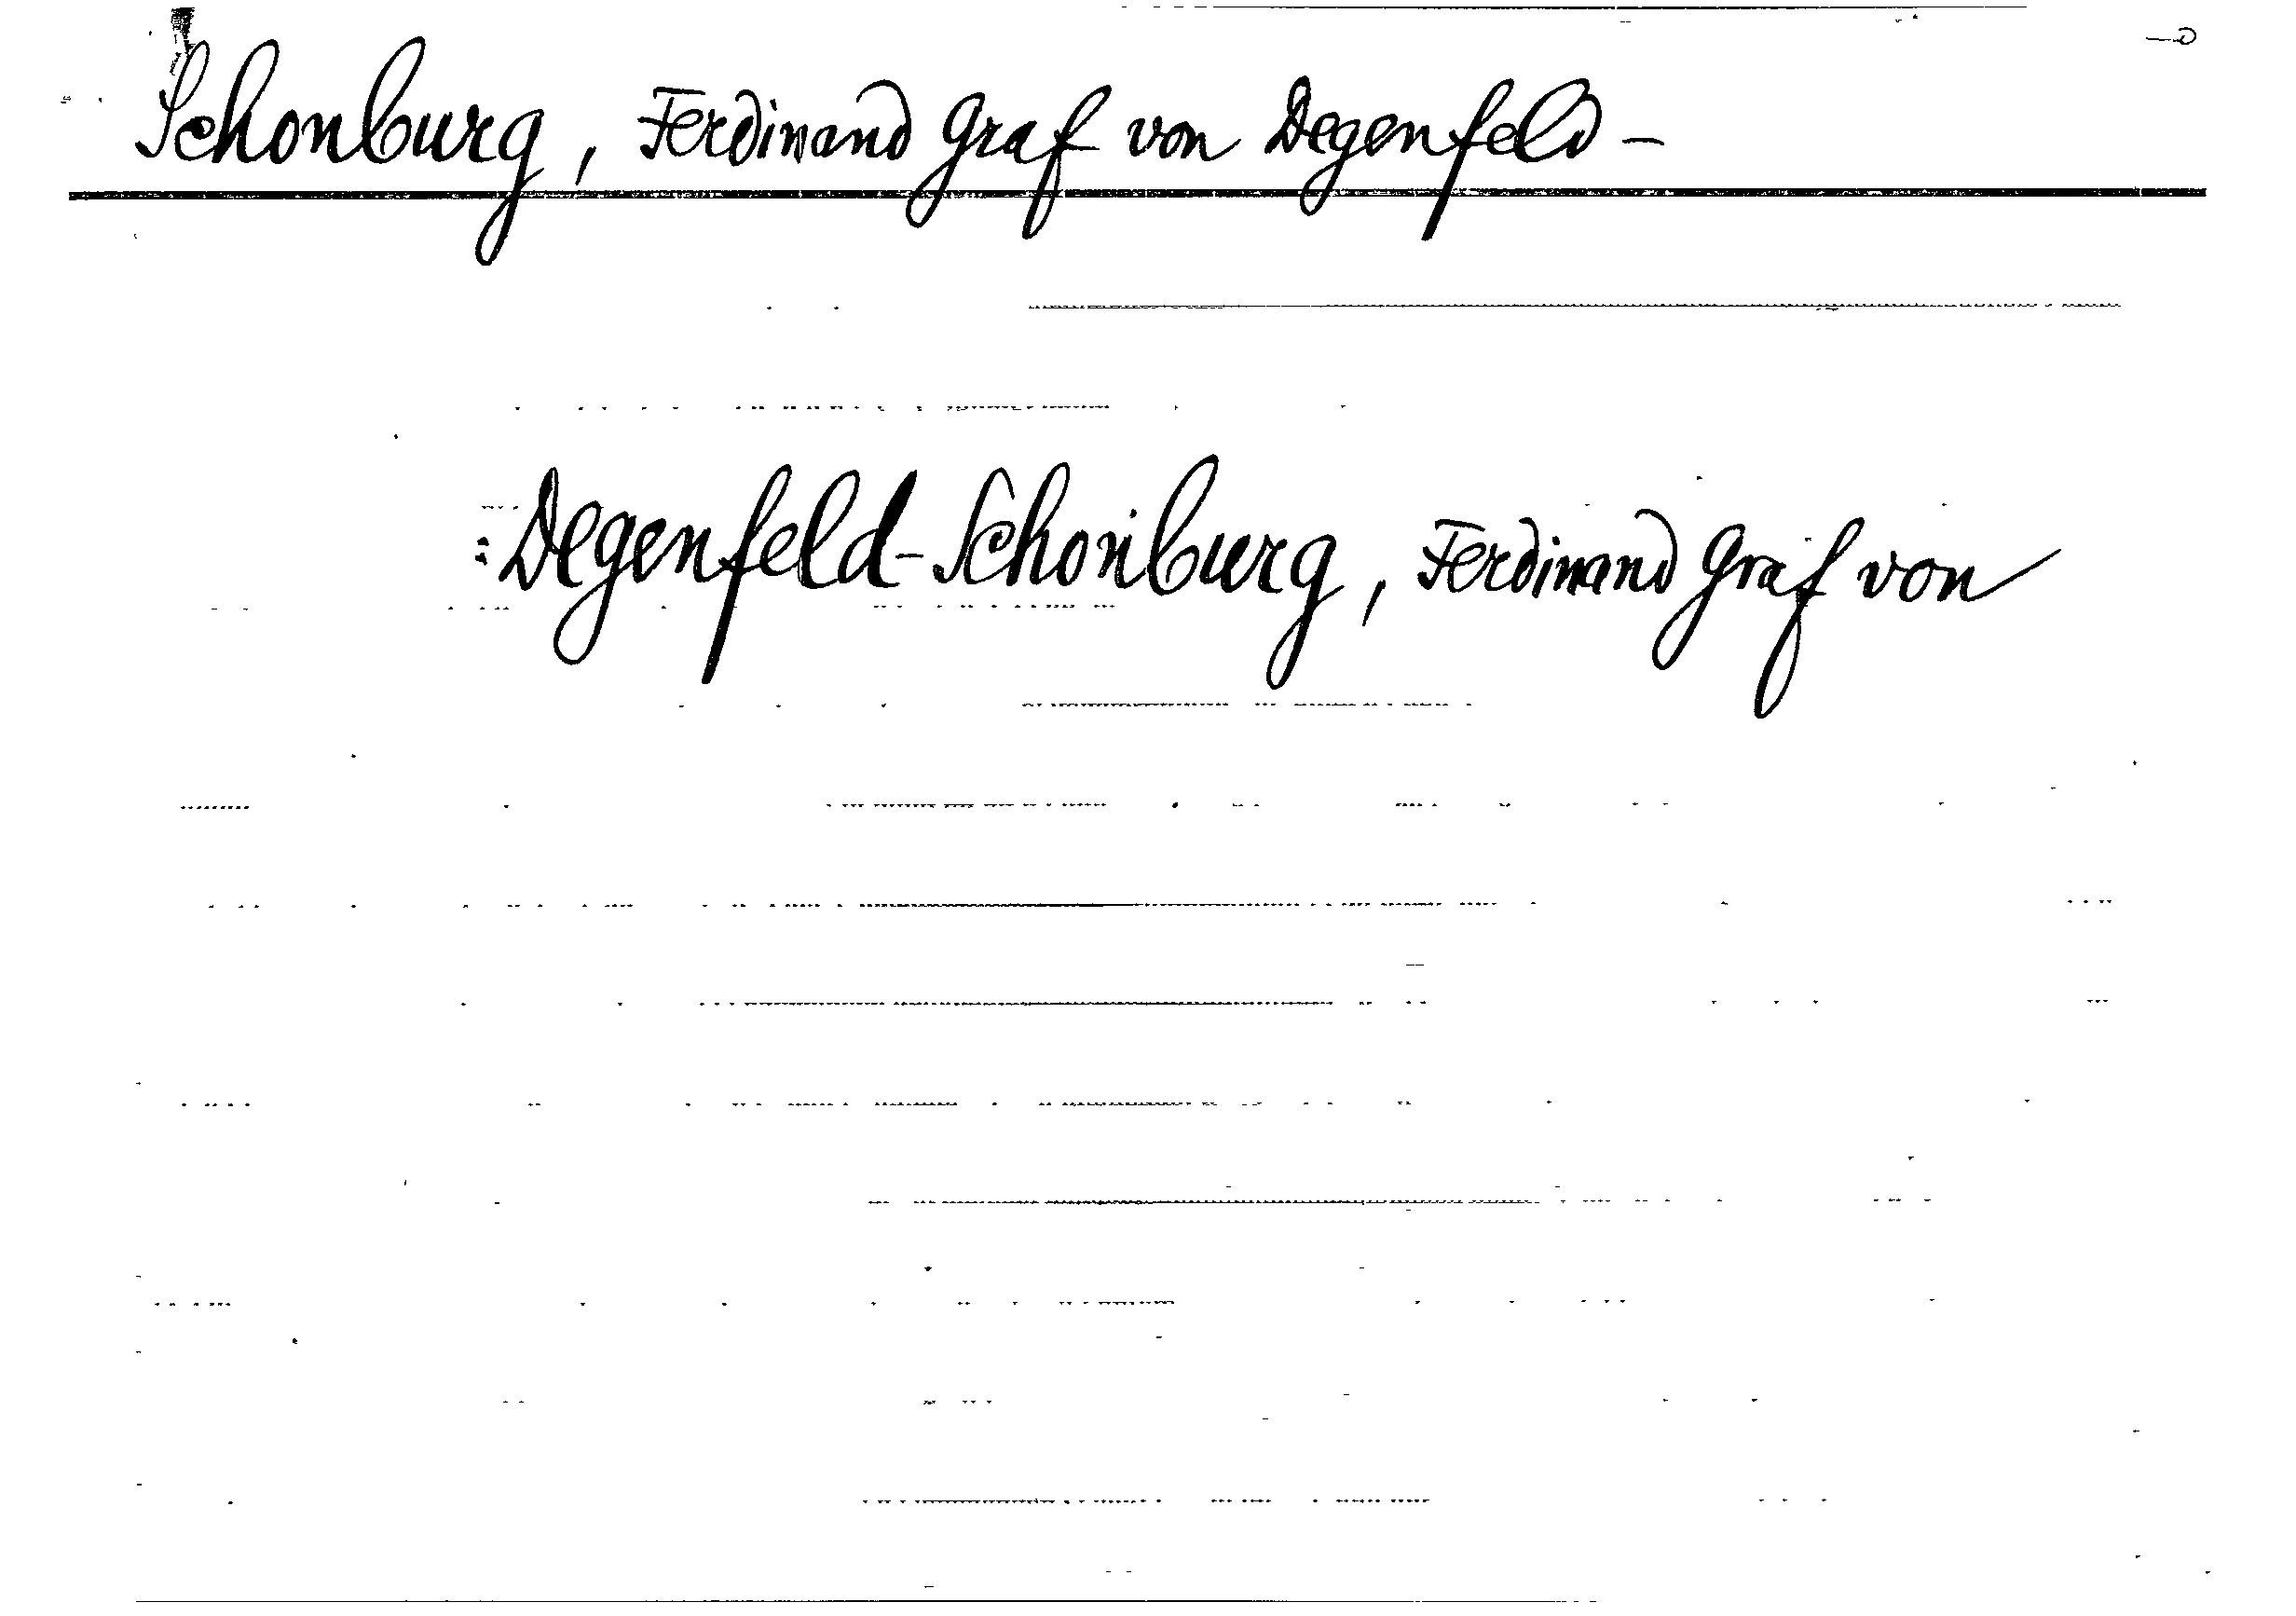 Schonburg, Ferdinand Graf von Degenfeld-
: Degenfeld-Schonburg, Ferdinand Graf von